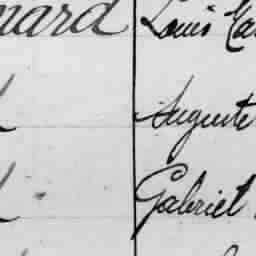 nard Louis Ca
Auguste
Gabriel